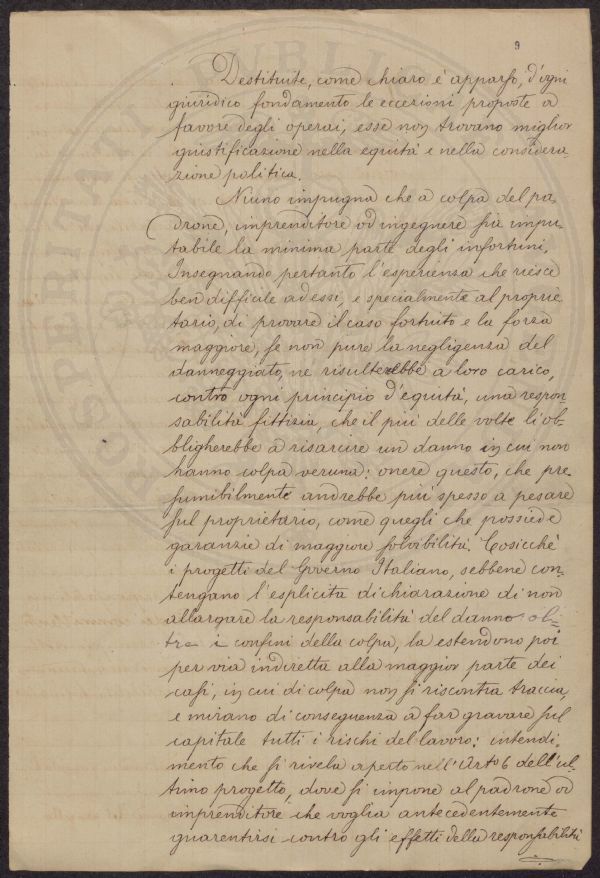 9
Destituite, come chiaro è apparso, d'ogni
giuridico fondamento le eccezioni proposte a
favore degli operai, esse non trovano miglior
giustificazione nella equità e nella considera-
zione politica.
Niuno impugna che a colpa del pa-
drone, imprenditore od ingegnere sia impu-
tabile la minima parte degli infortuni.
Insegnando pertanto l'esperienza che riesce
ben difficile ad essi, e specialmente al proprie-
tario, di provare il caso fortuito e la forza
maggiore, se non pure la negligenza del
danneggiato, ne risulterebbe a loro carico,
contro ogni principio d'equità, una respon-
sabilità fittizia, che il più delle volte li ob-
bligherebbe a risarcire un danno in cui non
hanno colpa veruna: onere questo, che pre-
sumibilmente andrebbe più spesso a pesare
sul proprietario, come quegli che possiede
garanzie di maggiore solvibilità. Cosicchè
i progetti del Governo Italiano, sebbene con-
tengano l'esplicita dichiarazione di non
allargare la responsabilità del danno ol-
tre i confini della colpa, la estendono poi
per via indiretta alla maggior parte dei
casi, in cui di colpa non si riscontra traccia,
e mirano di conseguenza a far gravare sul
capitale tutti i rischi del lavoro: intendi-
mento che si rivela aperto nell'Arto 6 dell'ul-
timo progetto, dove si impone al padrone od
imprenditore che voglia antecedentemente
guarentirsi contro gli effetti della responsabilità
PROSPERITATI PVBLICAE